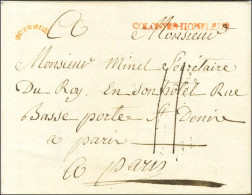 A Monsieur
COLONIES HONFLEUR
Monsieur Minel Secrétaire
Du Roy. En son hôtel Rue
Basse porte St Denis
a paris
A paris